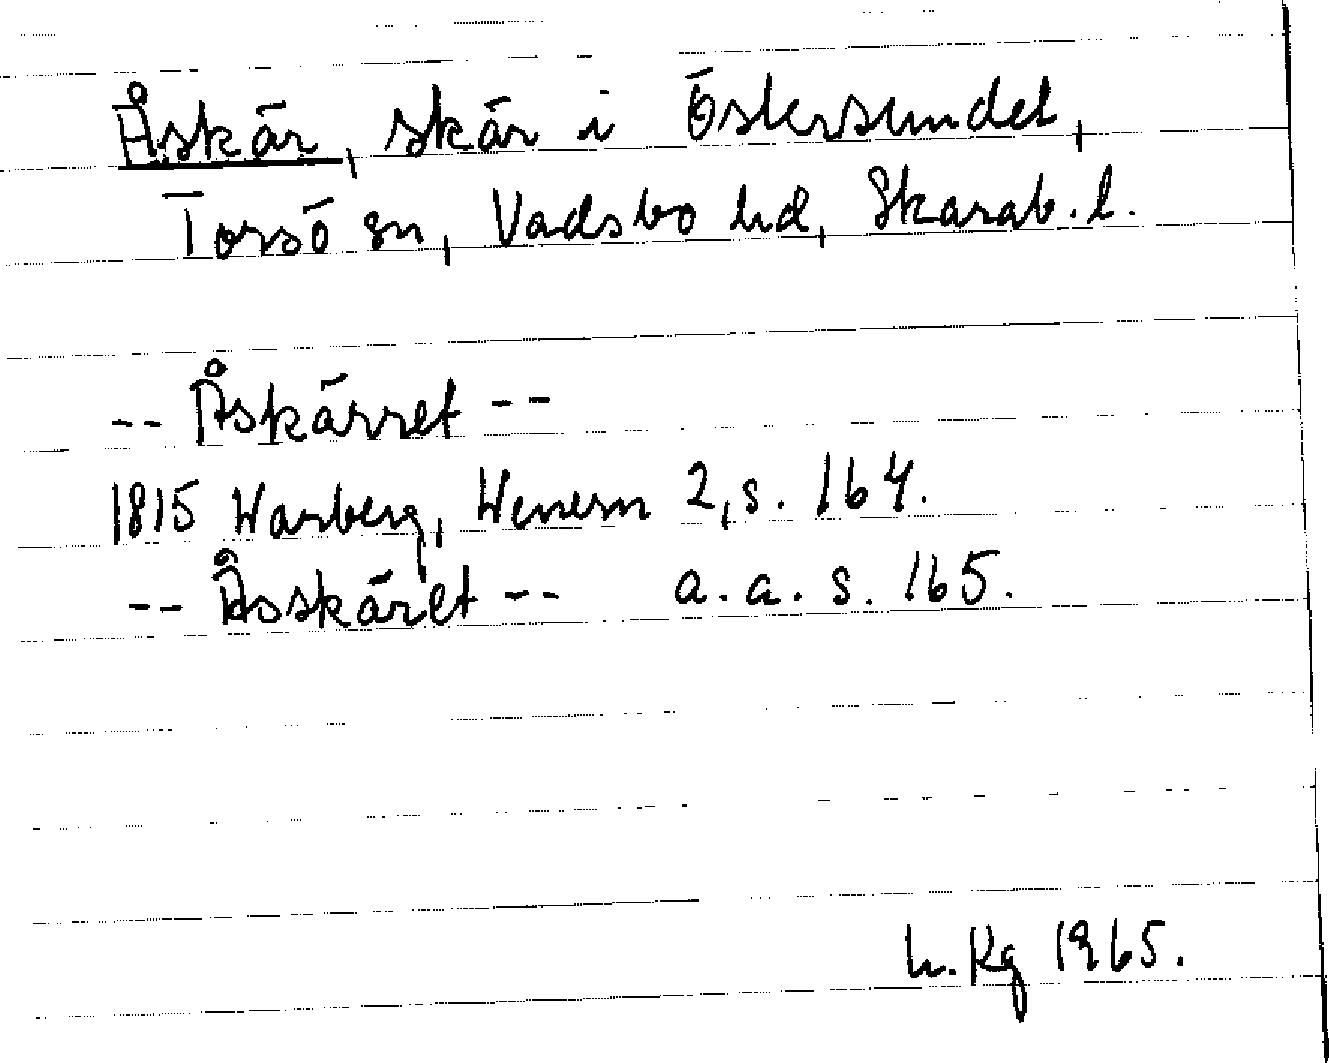 Åskär, skär i Östersundet,
Torsö sn, Vadsbo hd, Skarab. l.
-- Åskärret --
1815 Warberg, Wenern 2, s. 164.
-- Åsskäret -- a. a. s. 165.
h. Kg 1965.